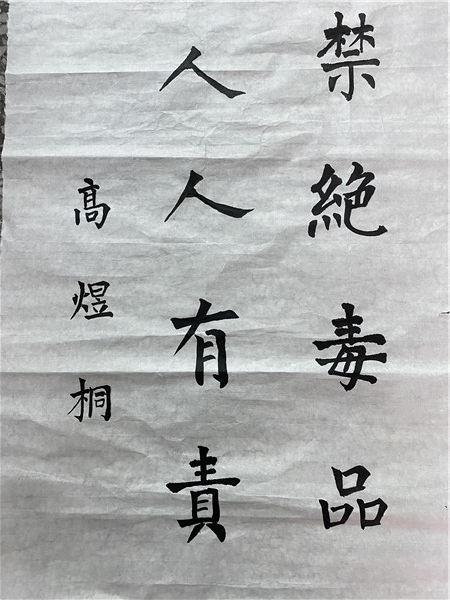 禁絕毒品
人人有責
高煜桐